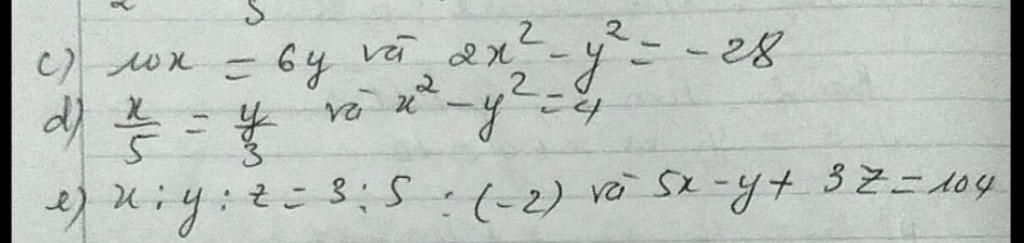 c) 10x = 6y và 2x² - y² = -28
d) x/5 = y/3 và x² - y² = 4
e) x : y : z = 3 : 5 : (-2) và 5x - y + 3z = 104